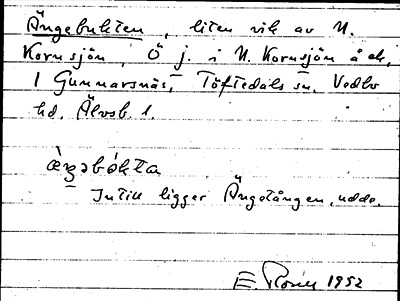 Ängebukten, liten vik av N.
Kornsjön, Ö j. i N. Kornsjön å ek.
1 Gunnarsnäs, Töftedals sn. Vedbo
hd. Älvsb. l.
Intill ligger Ängetången, udde.
1952